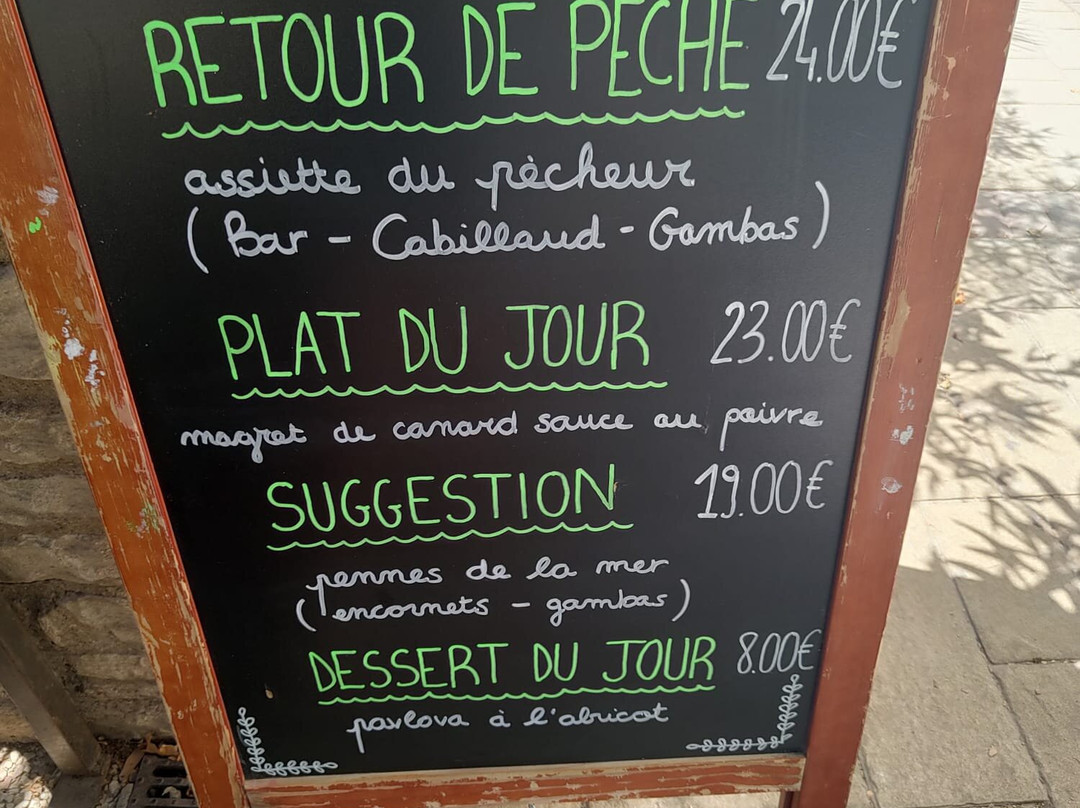 RETOUR DE PÊCHE 24.00€
assiette du pêcheur
( Bar - Cabillaud - Gambas )
PLAT DU JOUR 23.00€
magret de canard sauce au poivre
SUGGESTION 19.00€
pennes de la mer
( encornets - gambas )
DESSERT DU JOUR 8.00€
pavlova à l'abricot